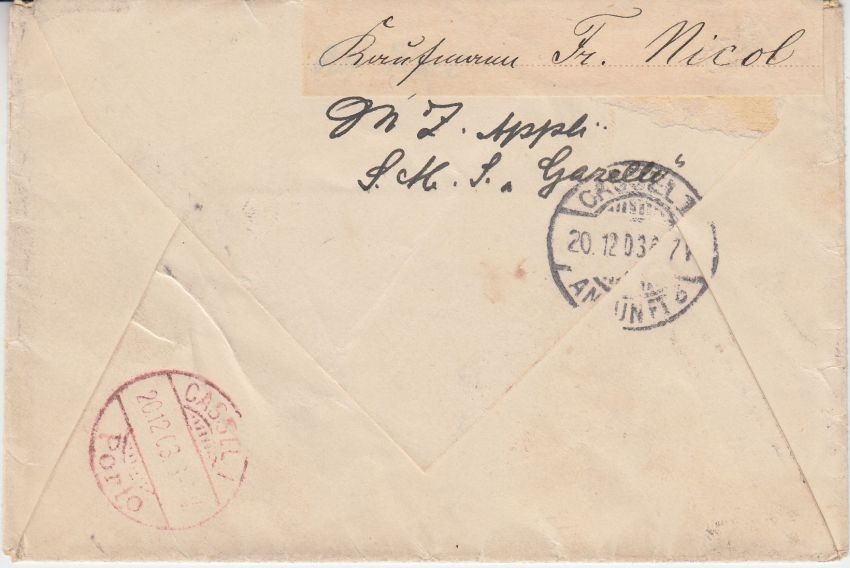 Kaufmann Fr. Nicol
Z. Appli
S. M. S. „Gazelle“
CASSEL 1
20.12.03
ANKUNFT
CASSEL 1
20 12 03
Porto